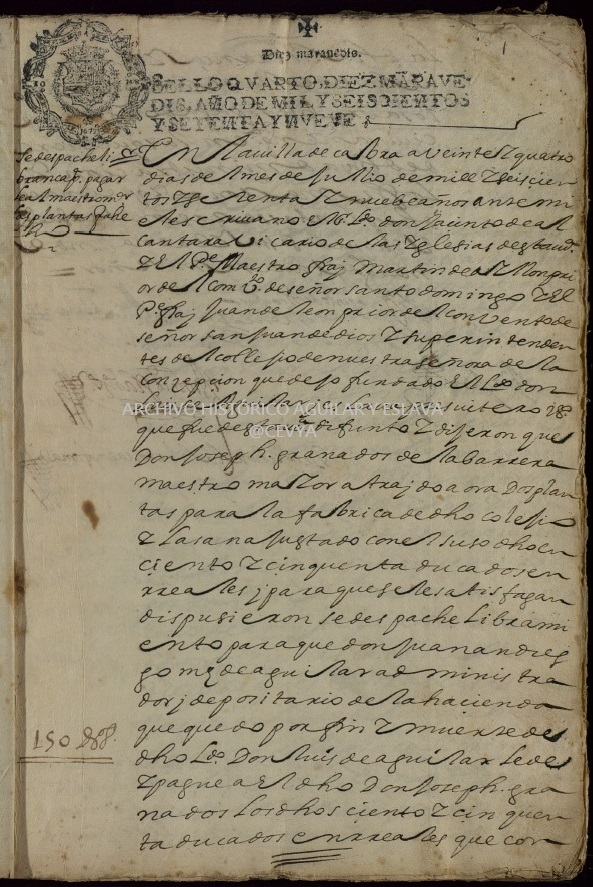 1
Diez marauedis.
SELLO QVARTO, DIEZ MARAVE-
DIS, AÑO DE MIL Y SEISCIENTOS
Y SETENTA Y NVEVE
Se despache li
branca pa. pagar
al maestro mor
las plantas q̃ a he
cho
En la uilla de cabra a Veinte Y quatro
dias del mes de Jullio de mill Y seiscien
tos Y setenta Y nuebe años ante mi
el escriuano el Sr. Ldo. don Jacinto de al
cantara Vicario de las Yglesias desta ud.
Y el Pe. Maestro fraj Martin de
or del combto. de señor santo domingo Y El
Pe. fraj Juan de leon prior del conVento de
señor san Juan de dios Y superintenden
tes del collejio de nuestra señora de la
Conzepcion que dejo fundado el Ldo. don
Luis de Aguilar
que fue desta Va. difunto Y dijeron que
Don Joseph. granados de la barrera
maestro maYor a trajdo aora Dos plan
tas para la fabrica de dho colejio
Y las an ajustado con el suso dho en
ciento Y cinquenta ducados en
rreales j para que se le satisfagan
dispusieron se despache Librami
ento para que don Juan andres
gomez de aguilar administra
dor j depositario de la hacienda
que quedo por fin Y muerte de
dho Ldo. Don Luis de aguilar le de
Y pague a el dho Don Joseph. gra
nados los dhos ciento Y cinquen
ta ducados en rreales que con
150 dds.
ARCHIVO HISTÓRICO AGUILAR Y ESLAVA
@CEVYA